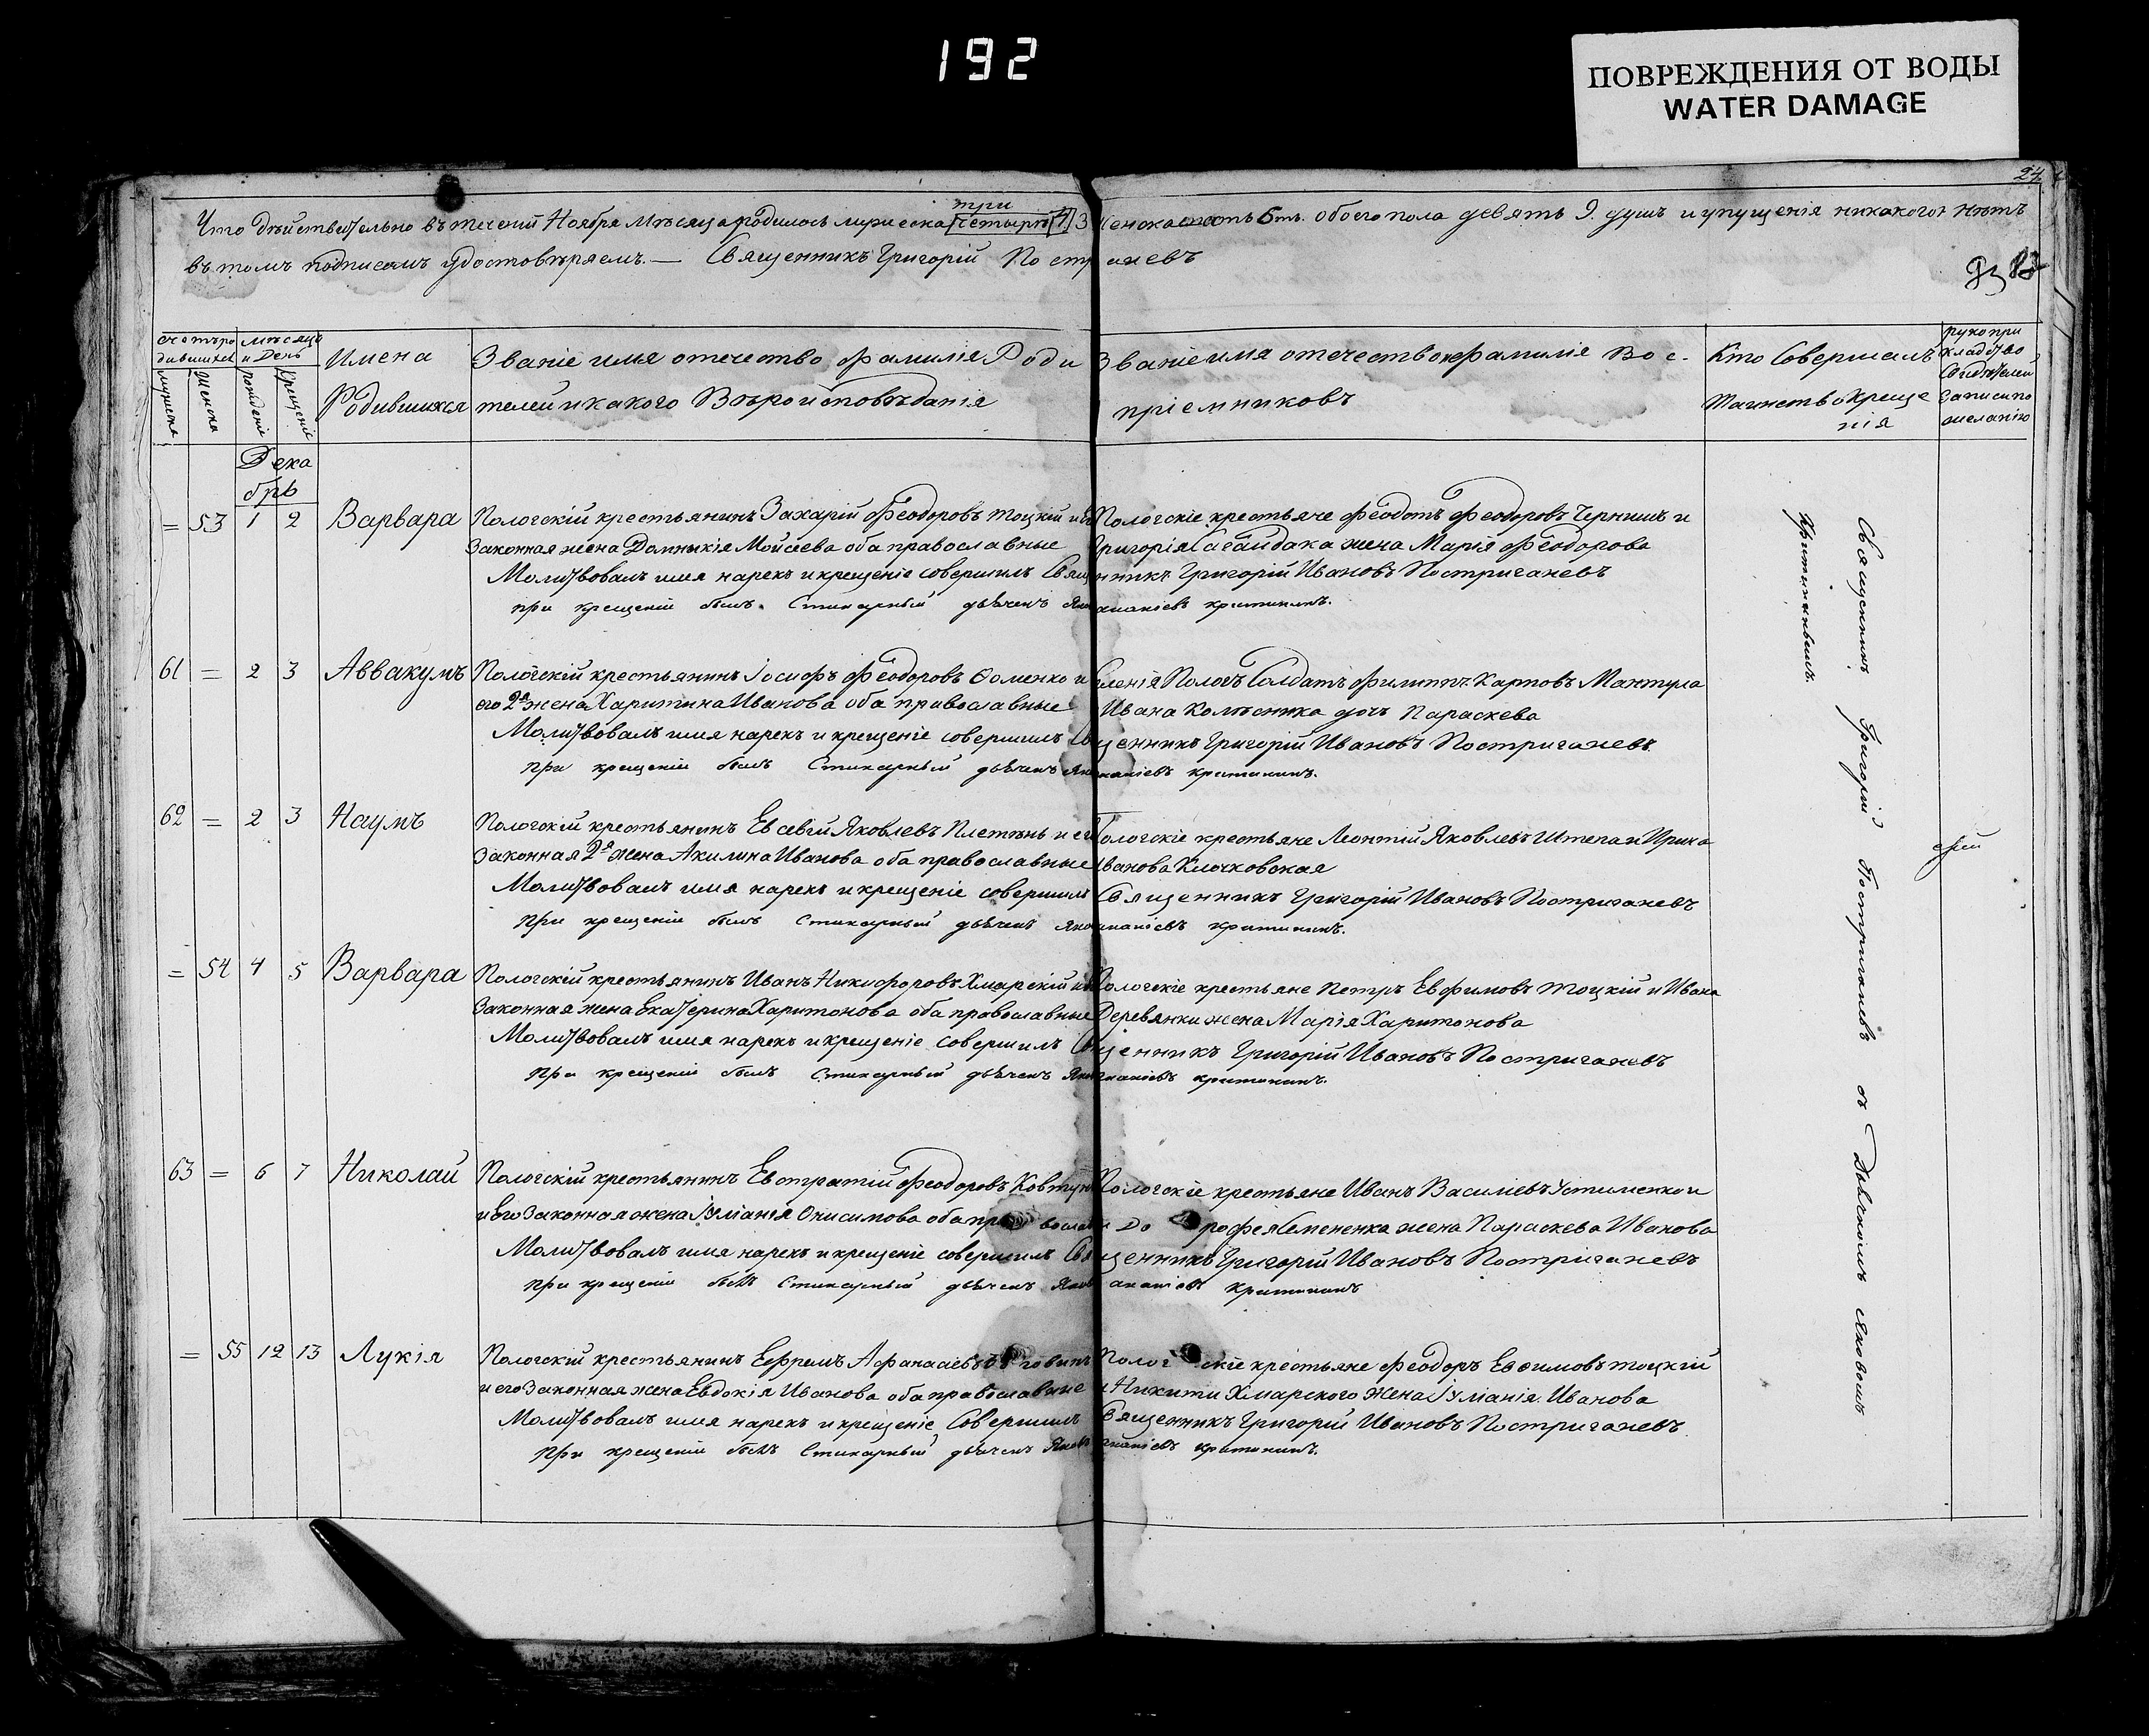 192
ПОВРЕЖДЕНИЯ ОТ ВОДЫ
WATER DAMAGE
24
три
Что дѣйствительно въ теченіи Ноября мѣсяца родилось мужеска четыре 4 Женска 6ть обоего пола девять 9. душъ и упущенія никакого нѣтъ
въ томъ подписомъ удостовѣряемъ. — Священникъ Григорій Постриганевъ
счетъ родившихся
мѣсяцъ и День
Имена Родившихся
Званіе имя отечество фамилія Родителей и какого Вѣроисповѣданія
Званіе имя отечество и фамилія Воспріемниковъ
Кто Совершалъ Таинство Крещенія
рукоприкладство Свидѣтелей записи по желанію
мужска
Женска
рожденіе
Крещеніе
Декабрь
= 53 1 2 Варвара Пологскій крестьянинъ Захарій Феодоровъ Тоцкій и его Пологскіе крестьяне Феодотъ Феодоровъ Чернышъ и
Законная жена Домникія Моисеева оба православные Григорія Сагайдака жена Марія Феодорова
Молитвовалъ имя нарекъ и крещеніе совершилъ Священникъ Григорій Ивановъ Постриганевъ
при крещеніи былъ Стихарный дьячекъ
61 = 2 3 Аввакумъ Пологскій крестьянинъ Іосифъ Феодоровъ Фоменко и Селенія Пологъ Солдатъ Филиппъ Карповъ Мантула
его 2я жена Харитина Иванова оба православные Ивана Колѣсника дочь Параскева
Молитвовалъ имя нарекъ и крещеніе совершилъ Священникъ Григорій Ивановъ Постриганевъ
при крещеніи былъ Стихарный дьячекъ
62 = 2 3 Наумъ Пологскій крестьянинъ Евсевій Яковлевъ Плетень и его Пологскіе крестьяне Леонтій Яковлевъ Штепа и Ирина
Законная 2я жена Акилина Иванова оба православные Иванова Клочковская
Молитвовалъ имя нарекъ и крещеніе совершилъ Священникъ Григорій Ивановъ Постриганевъ
при крещеніи былъ Стихарный дьячекъ
= 54 4 5 Варвара Пологскій крестьянинъ Иванъ Никифоровъ Хмарскій и его Пологскіе крестьяне Петръ Евфимовъ Тоцкій и Ивана
Законная жена Екатерина Харитонова оба православные Деревянки жена Марія Харитонова
Молитвовалъ имя нарекъ и крещеніе совершилъ Священникъ Григорій Ивановъ Постриганевъ
при крещеніи былъ Стихарный дьячекъ
63 = 6 7 Николай Пологскій крестьянинъ Евстратій Феодоровъ Ковтун Пологскіе крестьяне Иванъ Василіевъ Устименко и
и его Законная жена Іуліанія Онисимова оба Дорофея Семененка жена Параскева Иванова
Молитвовалъ имя нарекъ и крещеніе совершилъ Священникъ Григорій Ивановъ Постриганевъ
при крещеніи былъ Стихарный дьячекъ
= 55 12 13 Лукія Пологскій крестьянинъ Ефремъ Афанасіевъ Пологскіе крестьяне Феодоръ Евфимовъ Тоцкій
и его Законная жена Евдокія Иванова оба православные и Никиты Хмарского Жена Іуліанія Иванова
Молитвовалъ имя нарекъ и крещеніе Совершилъ Священникъ Григорій Ивановъ Постриганевъ
при крещеніи былъ Стихарный дьячекъ
Священникъ Григорій Постриганевъ съ Дьячкомъ Яковомъ